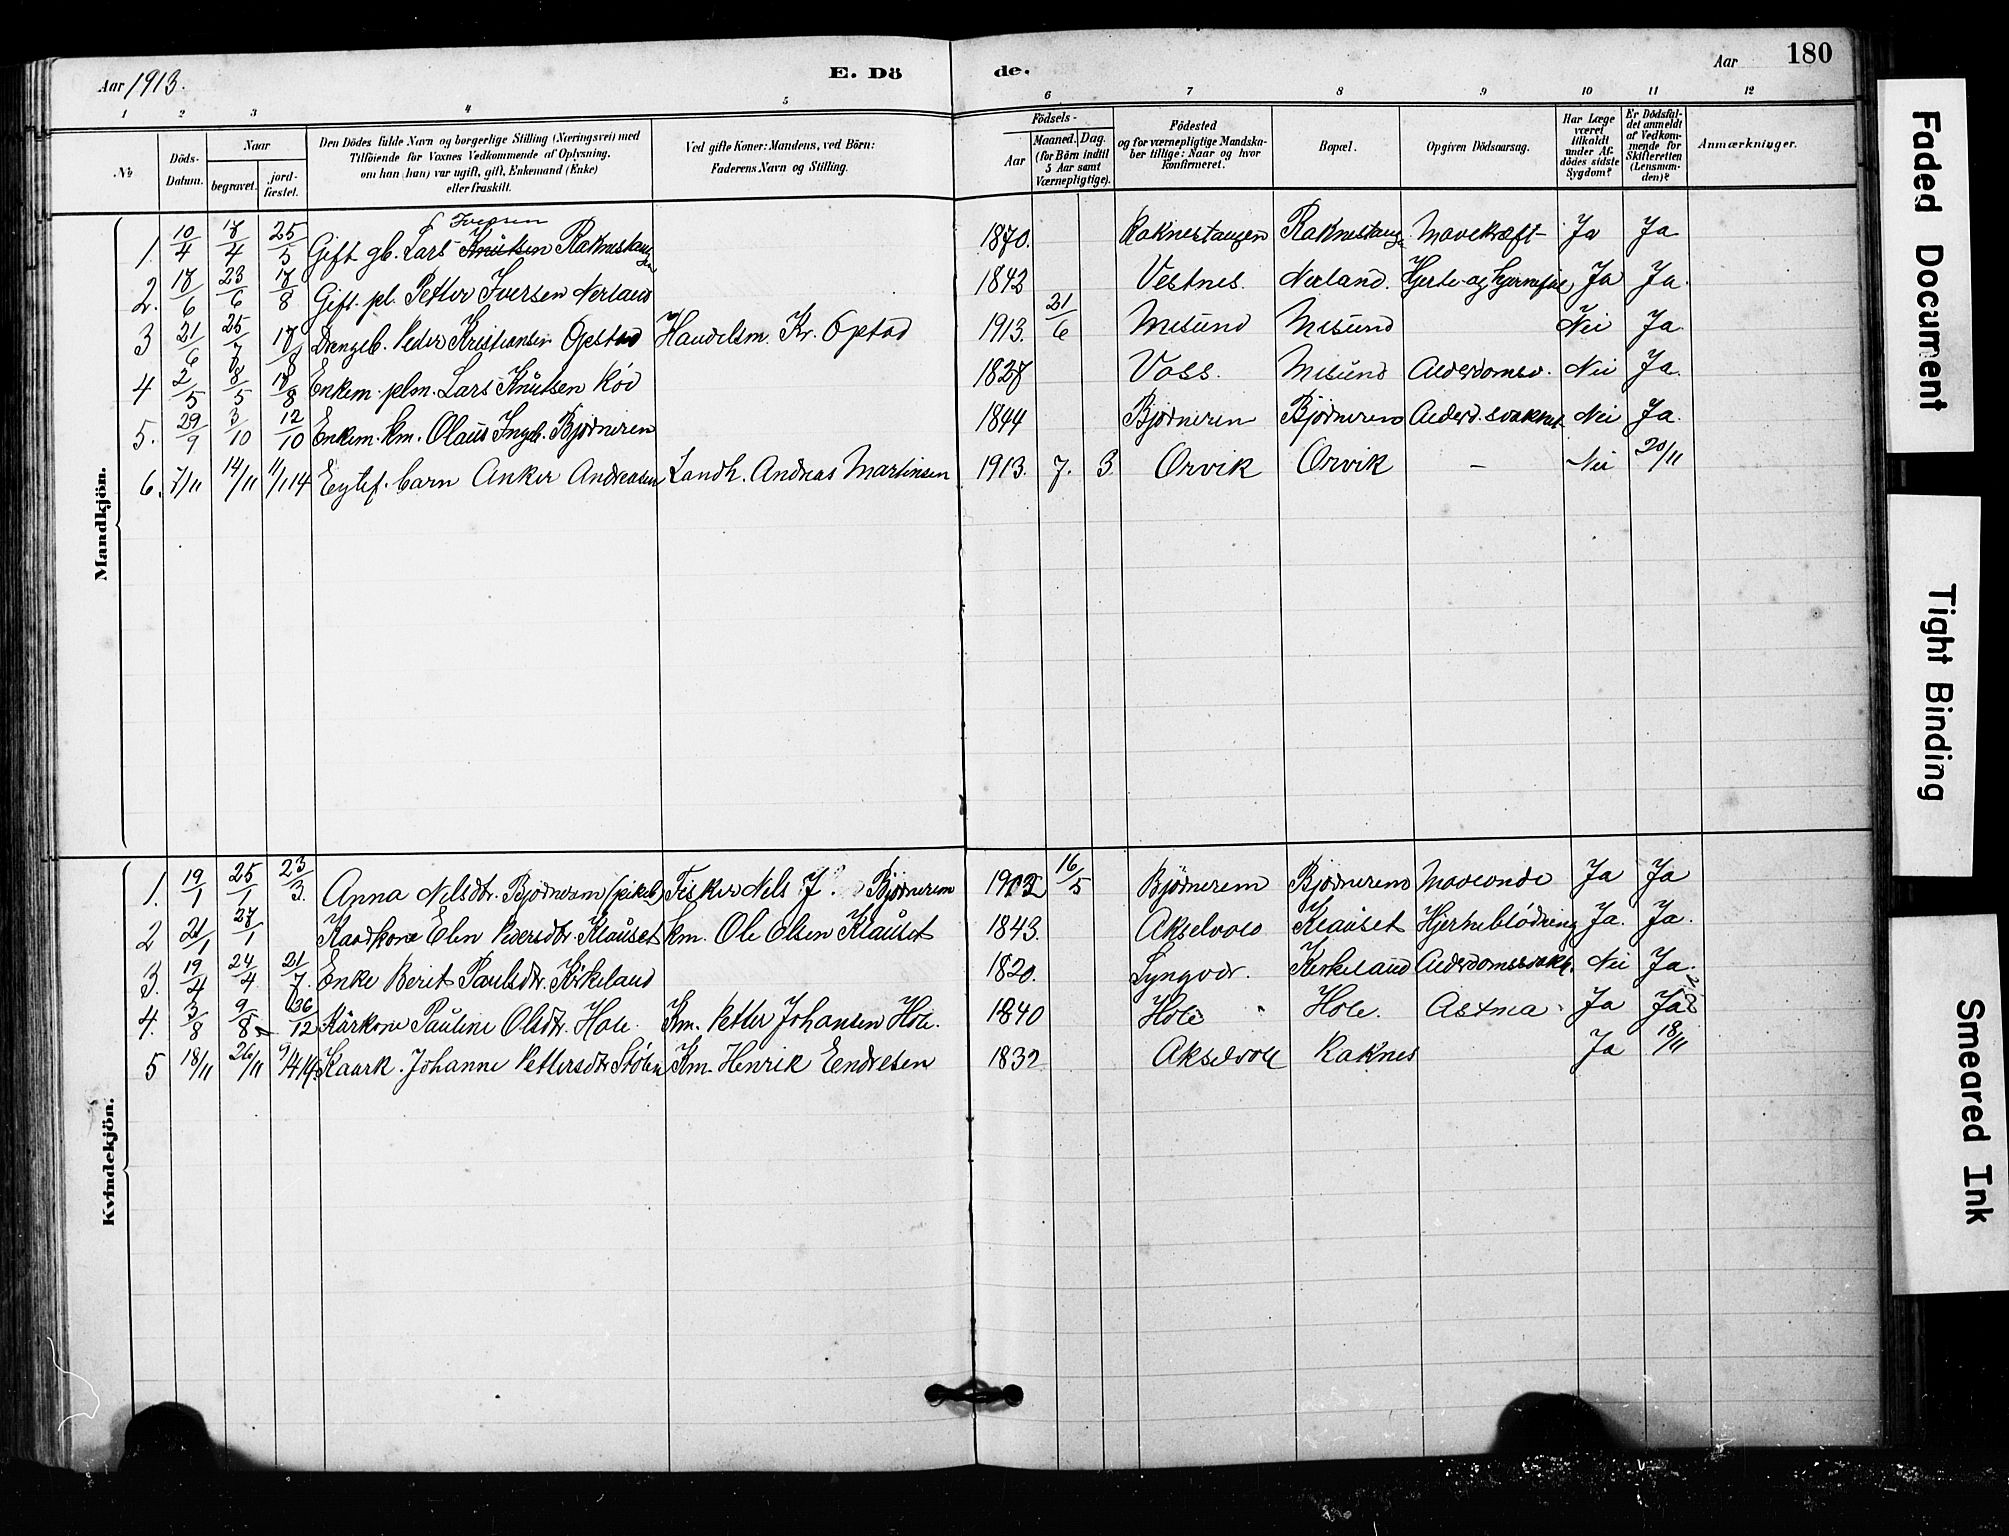 Aar 1913. E. Dö de. Aar 180
1 2 3 4 5 6 7 8 9 10 11 12
№
Döds-Datum.
Naar
begravet. jord-fæstet.
Den Dödes fulde Navn og borgerlige Stilling (Næringsvei) med
Tilföiende for Voxnes Vedkommende af Oplysning,
om han (hun) var ugift, gift, Enkemand (Enke)
eller fraskilt.
Ved gifte Koner: Mandens, ved Börn:
Faderens Navn og Stilling.
Födsels-
Aar
Maaned. Dag.
(for Börn indtil
5 Aar samt
Værnepligtige).
Födested
og for værnepligtige Mandska-
ber tillige: Naar og hvor
konfirmeret.
Bopæl.
Opgiven Dödsaarsag.
Har Læge
været
tilkaldt
under Af-
dødes sidste
Sygdom?
Er Dödsfal-
det anmeldt
af Vedkom-
mende for
Skifteretten
(Lensman-
den)?
Anmærkninger.
Mandkjön.
Iversen
1. 10/4 17/4 25/5 Gift gb. Lars Knutsen Raknestangen 1870. Raknestangen Raknestang Mavekræft Ja Ja
2. 17/6 23/6 17/8 Gift. pl. Petter Iversen Nerland 1842 Vestnes. Nerland. Ja Ja.
3 21/6 25/7 17/8 Drengeb. Peder Kristiansen Opstad Handelsm. Kr. Opstad 1913. 21/6 Misund Misund Nei Ja
4 2/5 8/5 17/8 Enkem. plm. Lars Knutsen Röd 1827 Voss. Misund Alderdomsv. Nei Ja.
5. 29/9 3/10 12/10 Enkem. km. Olaus Ingeb. Björnerem 1844 Björnerem Björnerem Alderd.svakhet Nei Ja.
6. 7/11 14/11 11/1 14 Egtef. barn Anker Andreasen Landh. Andreas Martinsen 1913. 7. 3. Orvik Orvik - Nei 20/11
Kvindekjön.
1. 19/1 25/1 23/3. Anna Nelsdtr. Björnerem (pikeb) Fisker Nels J. Björnerem 1912 16/5 Björnerem Björnerem Maveonde Ja Ja
2 21/1 27/1 Kaarkone Elen Pedersdtr. Klauset km. Ole Olsen Klauset 1843. Akselvold Klauset Hjerneblödning Ja. Ja.
3. 19/4 24/4 21/7. Enke Berit Paulsdtr. Kirkeland 1820. Lyngvær. Kirkeland Alderdomssvakh. Nei Ja.
4. 3/8 9/8 /12 Kårkone Pauline Olsdtr. Hole. Km. Petter Johansen Hole. 1840 Hole Hole. Astma Ja Ja
5 18/11 26/11 9/4 14. Kaark. Johanne Pettersdtr Stölen Km. Henrik Endresen 1832 Akselvoll Raknes Ja 18/11
Faded Document
Tight Binding
Smeared Ink